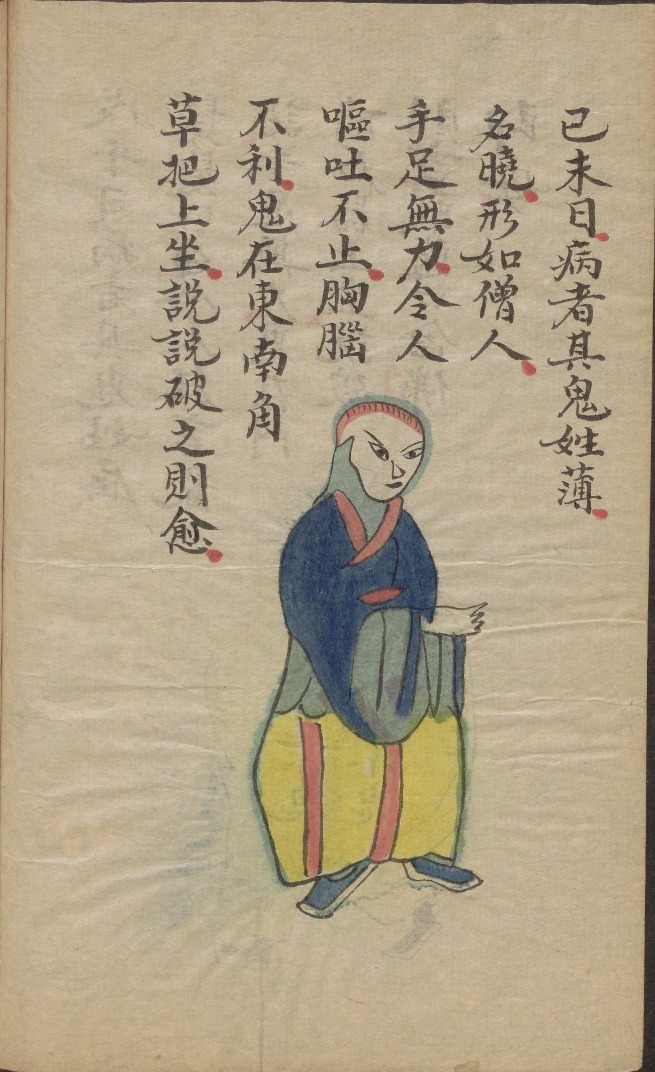 已未日病者其鬼姓薄
名曉形如僧人
手足無力令人
嘔吐不止胸腦
不利鬼在東南角
草把上坐説説破之則愈